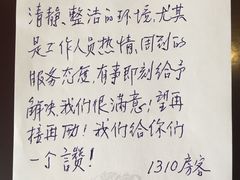 清静、整洁的环境,尤其
是工作人员热情、周到的
服务态度,有事即刻给予
解决,我们很满意!望再
接再励!我们给你们
一个讚!
1310房客